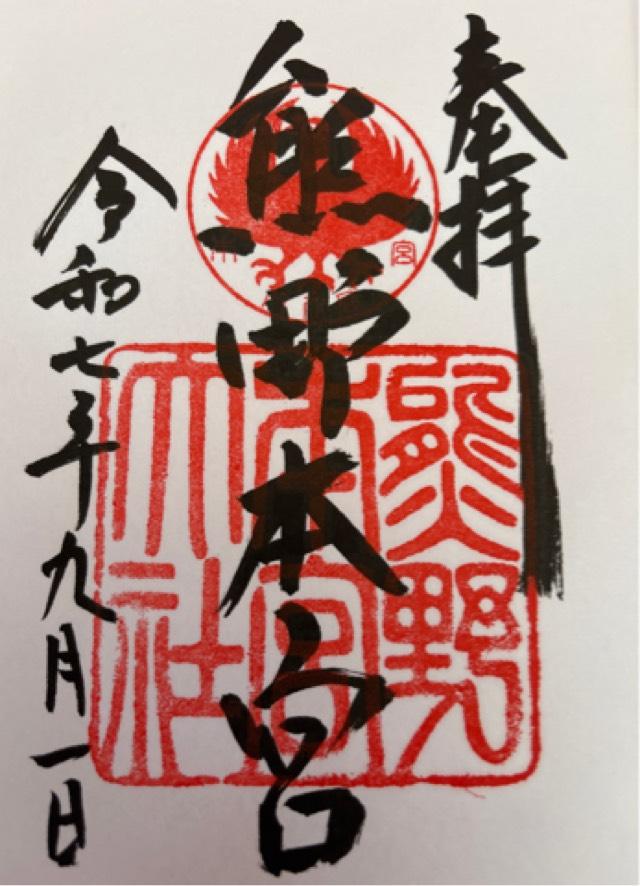 奉拝
熊野本宮
令和七年九月一日
熊野
本宮
大社
宮